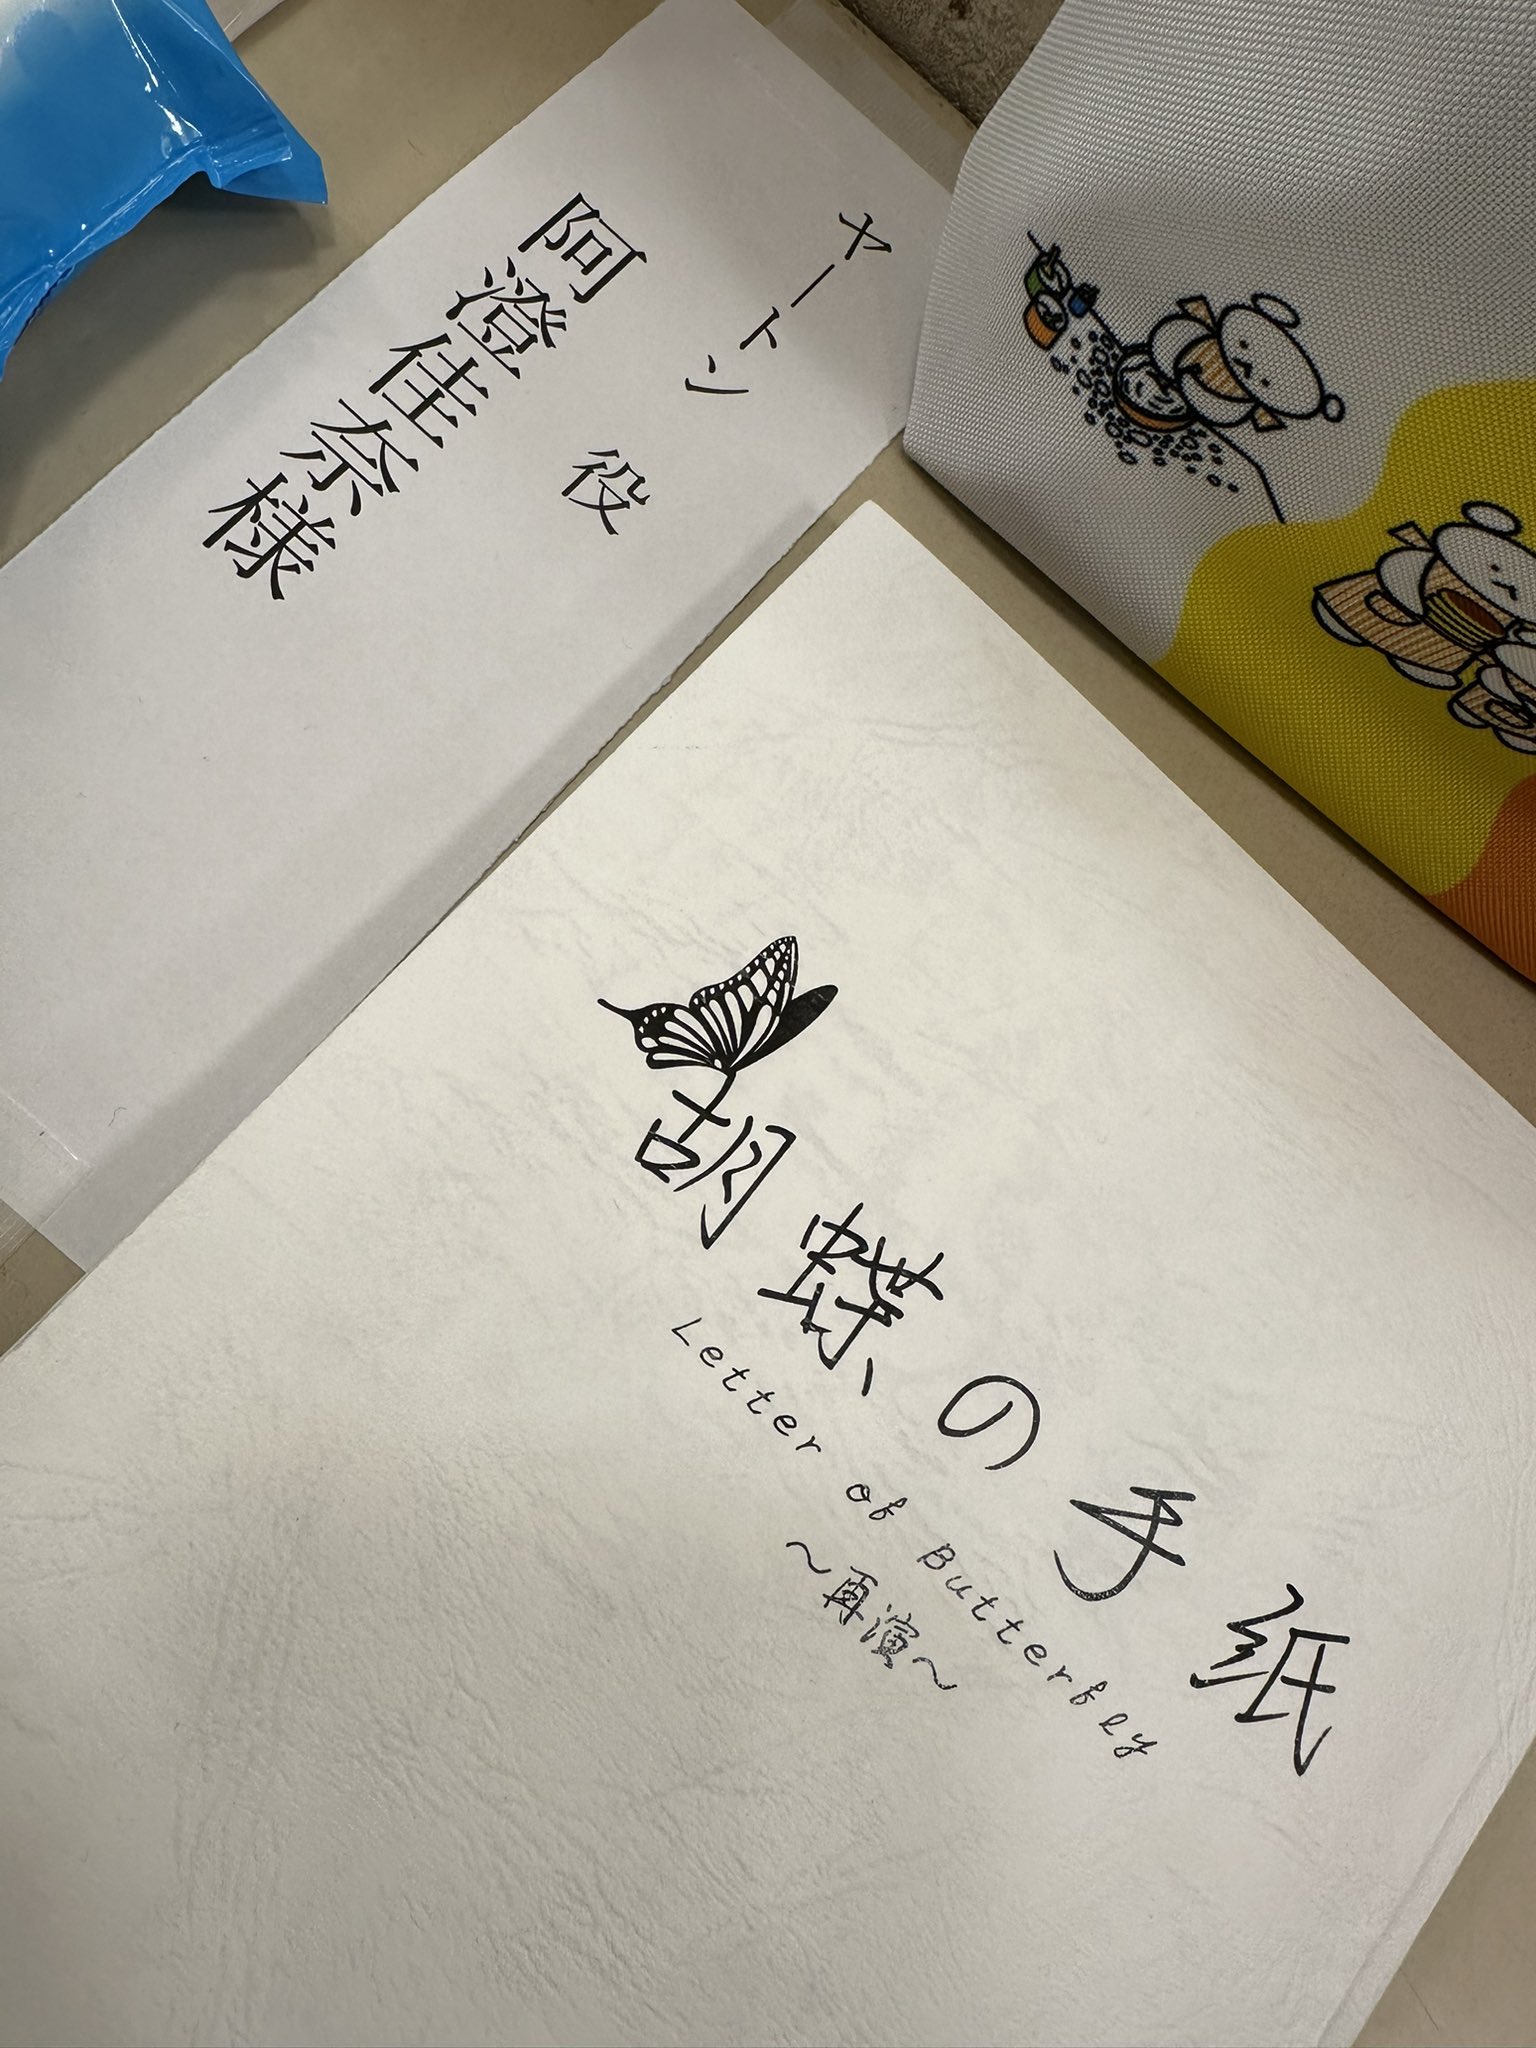 ヤートン 役
阿澄佳奈様
胡蝶の手紙
Letter of Butterfly
～再演～